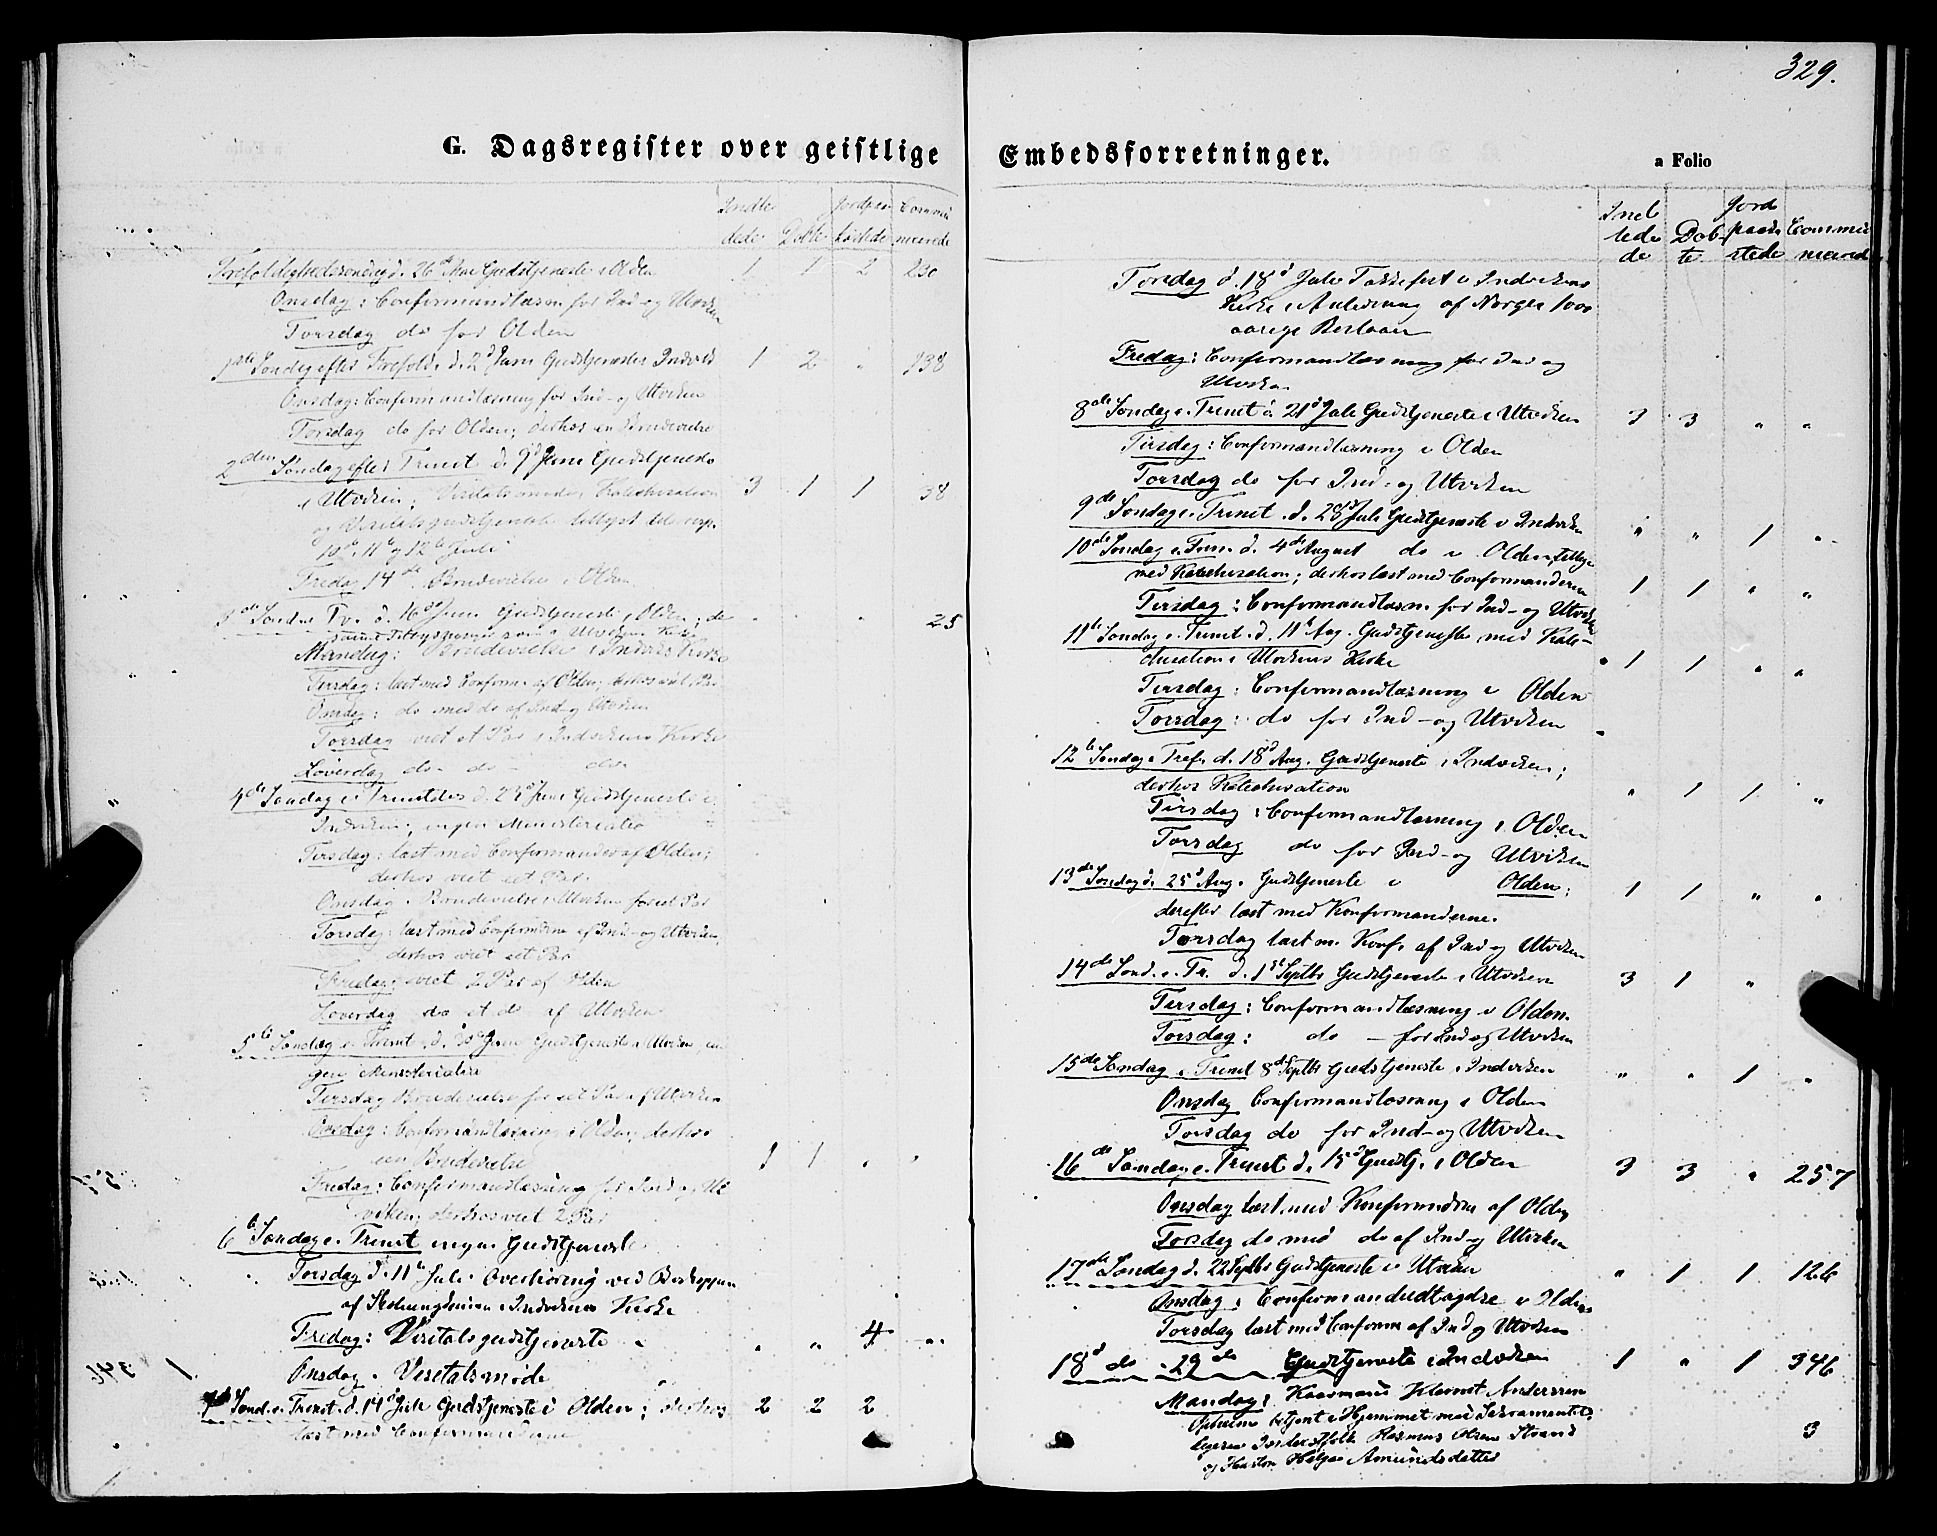 329.
G. Dagsregister over geistlige Embedsforretninger.
a Folio
Indle Jordpaa Commu
dede Døbte kastede nicerede
Trefoldighedssøndag d. 26d Mai Gudstjeneste i Olden 1 1 2 230
Onsdag: Confirmandlæsn. for Ind- og Utviken
Torsdag do for Olden
1ste Søndag efter Trefold. d. 2d Juni Gudstjeneste i Indviken 1 2 " 138
Onsdag: Confirmandlæsning for Ind- og Utviken
Torsdag do for Olden; derhos en Brudevielse
2den Søndag efter Trinit. d. 9d Juni Gudstjeneste
i Utviken; Visitatsmøde, Katechisation 3 1 1 38
og Visitatsgudstjeneste tillyst til resp.
10de, 11te og 12te Juli
Fredag 14de Brudevielse i Olden
3die Sønd. e. Tr. d. 16de Juni Gudstjeneste i Olden; de " " " 25
samme Tillysninger som i Utvikens Kirke
Mandag: Brudevielse i Indvikens Kirke
Tirsdag: læst med Confirm. af Olden; derhos viet 1 Par
Onsdag: do med do af Ind- og Utviken
Torsdag viet et Par i Indvikens Kirke
Løverdag do - do - den
4de Søndag e. Trinitatis d. 23d Juni Gudstjeneste i
Indviken; ingen Ministerialia
Tirsdag: læst med Confirmander af Olden;
derhos viet eet Par.
Onsdag. Brudevielse i Utviken for eet Par
Torsdag: læst med Confirmderne af Ind- og Utviken,
derhos viet eet Par
Fredag: viet 2 Par af Olden
Løverdag do et do af Utviken
5te Søndag e. Trinit. d. 30d Juni Gudstjeneste i Utviken, in
gen Ministerialia
Tirsdag Brudevielse for eet Par af Utviken
Onsdag: Confirmandlæsning i Olden, derhos
een Brudevielse 1 1 " "
Fredag: Confirmandlæsning for Ind og Ut
viken; derhos viet 2 Par
6te Søndag e. Trinit ingen Gudstjeneste
Torsdag d. 11te Juli Overhøring ved Biskoppen
af Skoleungdommen i Indvikens Kirke
Fredag: Visitatsgudstjeneste " " 4 "
Onsdag. Visitatsmøde
7de Sønd. e. Trinit. d. 14d Juli Gudstjeneste i Olden; derhos 2 2 2
læst med Confirmanderne
Ind Jord
lede Døb- paaka Commu
de te stede nicered
Torsdag d. 18d Juli Takkefest i Indvikens
Kirke i Anledning af Norges 1000
aarige Bestaaen
Fredag: Confirmandlæsning for Ind og
Utviken
8de Søndag e. Trinit d. 21d Juli Gudstjeneste i Utviken 3 3 " "
Tirsdag: Confirmandlæsning i Olden
Torsdag do for Ind- og Utviken
9de Søndag e. Trinit. d. 28d Juli Gudstjeneste i Indviken " " 1 "
10de Søndag e. Trin. d. 4de August do i Olden, tillige
med Katechisation; derhos læst med Confirmanderne 1 1 " "
Tirsdag: Confirmandlæsn. for Ind- og Utviken
11te Søndag e. Trinit. d. 11te Aug. Gudstjeneste med Kate-
chisation i Utvikens Kirke 1 1 " "
Tirsdag: Confirmandlæsning i Olden
Torsdag: do for Ind- og Utviken
12te Søndag e. Tref. d. 18d Aug. Gudstjeneste i Indviken;
derhos Katechisation " 1 1 "
Tirsdag: Confirmandlæsning i Olden
Torsdag do for Ind- og Utviken
13de Søndag d. 25d Aug. Gudstjeneste i Olden; 1 1 " "
derefter læst med Konfirmanderne.
Torsdag læst m. Konf. af Ind- og Utviken
14de Sønd. e. Tr. d. 1ste Septbr Gudstjeneste i Utviken 3 1 "
Tirsdag: Confirmandlæsning i Olden.
Torsdag: do - for Ind og Utviken
15de Søndag e. Trinit 8d Septbr Gudstjeneste i Indviken " " 1 "
Onsdag Confirmandlæsning i Olden
Torsdag do for Ind- og Utviken
16de Søndag e. Trinit d. 15d Gudstj. i Olden 3 3 " 257
Onsdag læst med Konfirmdrne af Olden
Torsdag do med do af Ind- og Utviken
17de Søndag d. 22 Septbr Gudstjeneste i Utviken " 1 1 126
Onsdag: Confirmandudtagelse i Olden
Torsdag læst med Confirm af Ind og Utviken
18d do - 29de Gudstjeneste i Indviken 1 " 1 346
Mandag: Kaarmand Andersen
betjent i Hjemmet med Sacramentet,
Rasmus Olsen Strand 3
og Hustru Helga Amundsdatter